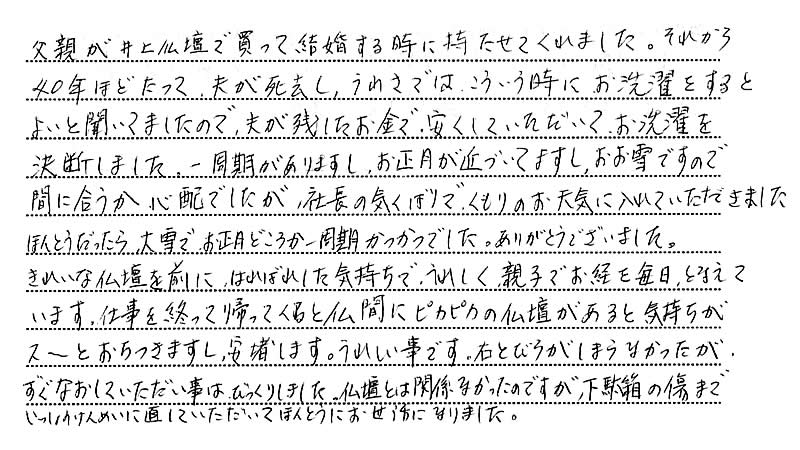 父親が井上仏壇で買って、結婚する時に持たせてくれました。それから
40年ほどたって、夫が死去し、うわさでは、こういう時にお洗濯をすると
よいと聞いてましたので、夫が残したお金で、安くしていただいて、お洗濯を
決断しました。一周期がありますし、お正月が近づいてますし、おお雪ですので
間に合うか心配でしたが、社長の気くばりで、くもりのお天気に入れていただきました
ほんとうだったら、大雪で、お正月どころか一周期かつかつでした。ありがとうございました。
きれいな仏壇を前に、はればれした気持ちで、うれしく、親子でお経を毎日、となえて
います。仕事を終って帰ってくると仏間にピカピカの仏壇があると気持ちが
ス〜とおちつきますし、安堵します。うれしい事です。右とびらがしまらなかったが、
すぐなおしていただい事は、びっくりしました。仏壇とは関係なかったのですが、下駄箱の傷まで
いっしょうけんめいに直していただいてほんとうにお世話になりました。